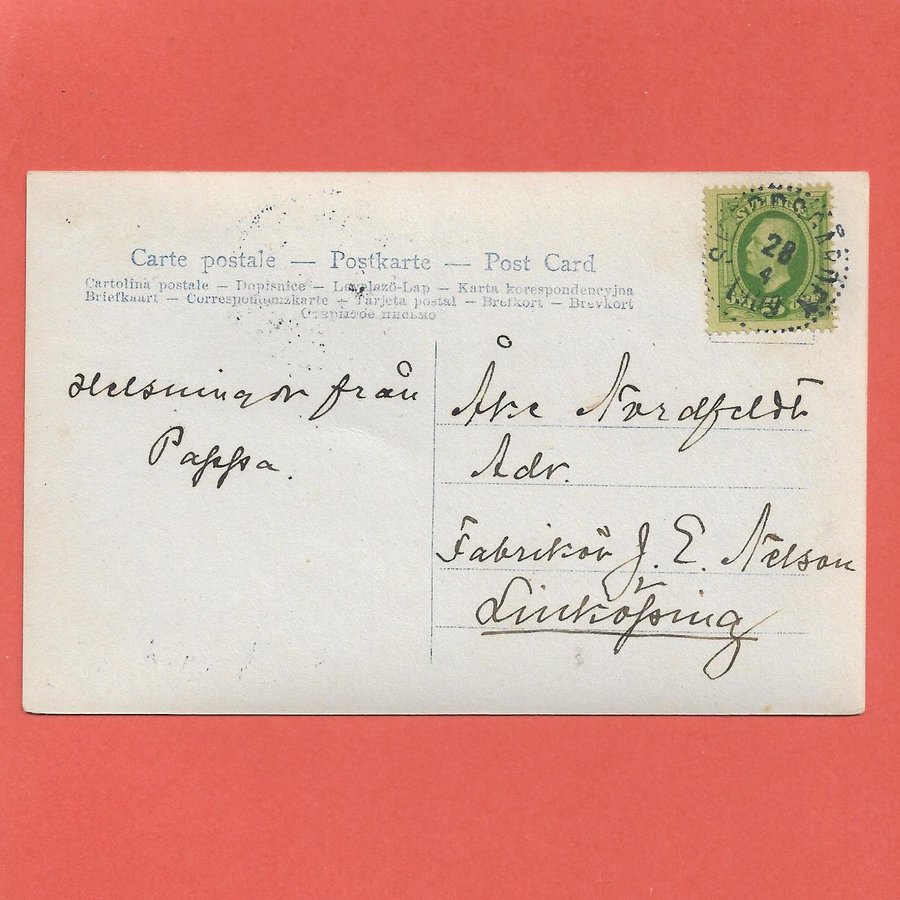 Carte postale — Postkarte — Post Card
Cartolina postale — Dopisnice — Levelező-Lap — Karta korespondencyjna
Briefkaart — Correspondenzkarte — Tarjeta postal — Brefkort — Brevkort
Открытое письмо
28
4
Helsningar från
Pappa.
Åke Nordfeldt
Adr.
Fabrikör J. E. Nelson
Linköping